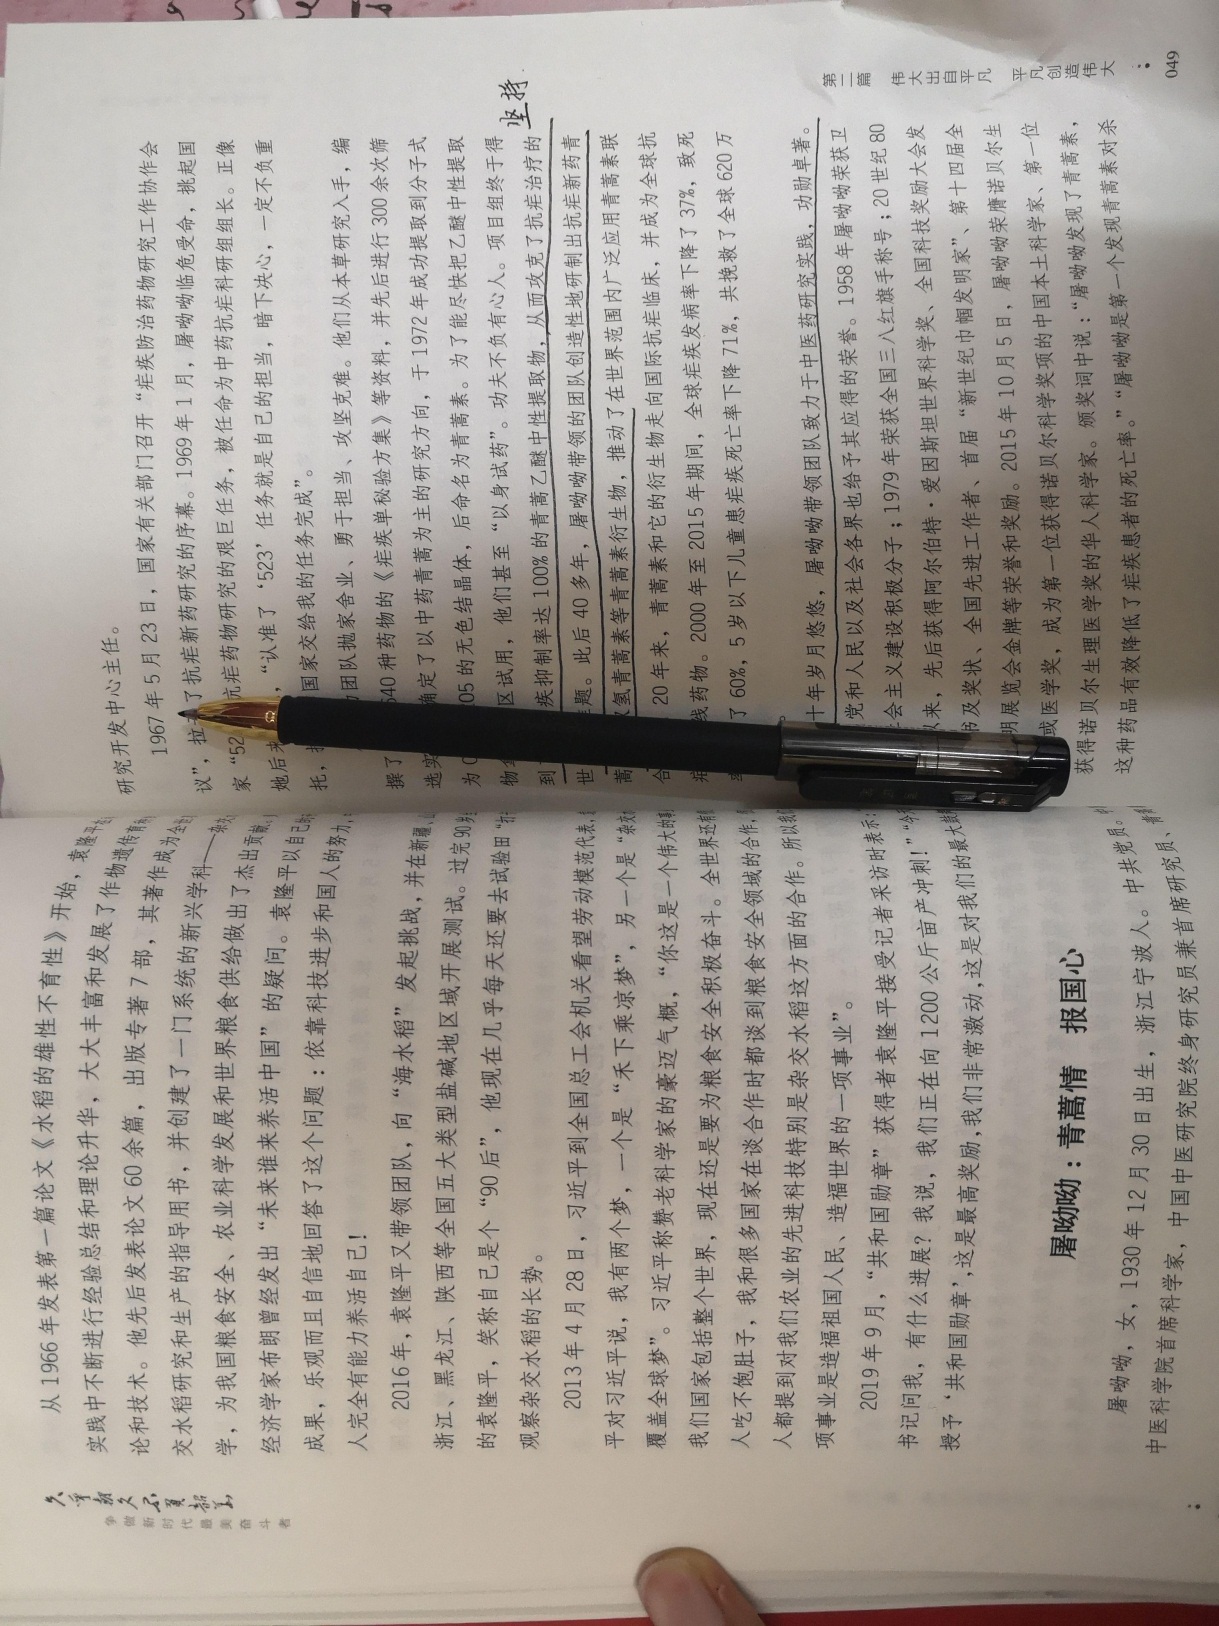 争做新时代最美奋斗者
从1966年发表第一篇论文《水稻的雄性不育性》开始，袁隆平在
实践中不断进行经验总结和理论升华，大大丰富和发展了作物遗传育种
论和技术。他先后发表论文60余篇，出版专著7部，其著作成为全
交水稻研究和生产的指导用书，并创建了一门系统的新兴学科——杂交
学，为我国粮食安全、农业科学发展和世界粮食供给做出了杰出贡献。
经济学家布朗曾经发出“未来谁来养活中国”的疑问。袁隆平以自己的
成果，乐观而且自信地回答了这个问题：依靠科技进步和国人的努力，
人完全有能力养活自己！
2016年，袁隆平又带领团队，向“海水稻”发起挑战，并在新疆、
浙江、黑龙江、陕西等全国五大类型盐碱地区域开展测试。过完90
的袁隆平，笑称自己是个“90后”，他现在几乎每天还要去试验田
观察杂交水稻的长势。
2013年4月28日，习近平到全国总工会机关看望劳动模范代表，
平对习近平说，我有两个梦，一个是“禾下乘凉梦”，另一个是“杂交
覆盖全球梦”。习近平称赞老科学家的豪迈气概，“你这是一个伟大的
我们国家包括整个世界，现在还是要为粮食安全积极奋斗。全世界还有
人吃不饱肚子，我和很多国家在谈合作时都谈到粮食安全领域的合作，
人都提到对我们农业的先进科技特别是杂交水稻这方面的合作。所以我
项事业是造福祖国人民、造福世界的一项事业”。
2019年9月，“共和国勋章”获得者袁隆平接受记者采访时表示：
书记问我，有什么进展？我说，我们正在向1200公斤亩产冲刺！”“今
授予‘共和国勋章’，这是最高奖励，我们非常激动，这是对我们的最大鼓
屠呦呦：青蒿情 报国心
屠呦呦，女，1930年12月30日出生，浙江宁波人。中共党员。
中医科学院首席科学家，中国中医研究院终身研究员兼首席研究员、
研究开发中心主任。
1967年5月23日，国家有关部门召开“疟疾防治药物研究工作协作会
议”，拉 了抗疟新药研究的序幕。1969年1月，屠呦呦临危受命，挑起国
家“52 抗疟药物研究的艰巨任务，被任命为中药抗疟科研组组长。正像
她后来 ，“认准了‘523’任务就是自己的担当，暗下决心，一定不负重
托， 国家交给我的任务完成”。
团队抛家舍业、勇于担当、攻坚克难。他们从本草研究入手，编
撰了 640种药物的《疟疾单秘验方集》等资料，并先后进行300余次筛
选实 确定了以中药青蒿为主的研究方向，于1972年成功提取到分子式
为C O5的无色结晶体，后命名为青蒿素。为了能尽快把乙醚中性提取
物 区试用，他们甚至“以身试药”。功夫不负有心人。项目组终于得
到 疾抑制率达100%的青蒿乙醚中性提取物，从而攻克了抗疟治疗的
坚持
世 题。此后40多年，屠呦呦带领的团队创造性地研制出抗疟新药青
蒿 氢青蒿素等青蒿素衍生物，推动了在世界范围内广泛应用青蒿素联
合 20年来，青蒿素和它的衍生物走向国际抗疟临床，并成为全球抗
疟 线药物。2000年至2015年期间，全球疟疾发病率下降了37%，致死
了60%，5岁以下儿童患疟疾死亡率下降71%，共挽救了全球620万
十年岁月悠悠，屠呦呦带领团队致力于中医药研究实践，功勋卓著。
党和人民以及社会各界也给予其应得的荣誉。1958年屠呦呦荣获卫
会主义建设积极分子；1979年荣获全国三八红旗手称号；20世纪80
以来，先后获得阿尔伯特·爱因斯坦世界科学奖、全国科技奖励大会发
书及奖状、全国先进工作者、首届“新世纪巾帼发明家”、第十四届全
明展览会金牌等荣誉和奖励。2015年10月5日，屠呦呦荣膺诺贝尔生
或医学奖，成为第一位获得诺贝尔科学奖项的中国本土科学家、第一位
获得诺贝尔生理医学奖的华人科学家。颁奖词中说：“屠呦呦发现了青蒿素，
这种药品有效降低了疟疾患者的死亡率。”“屠呦呦是第一个发现青蒿素对杀
第二篇 伟大出自平凡 平凡创造伟大
049